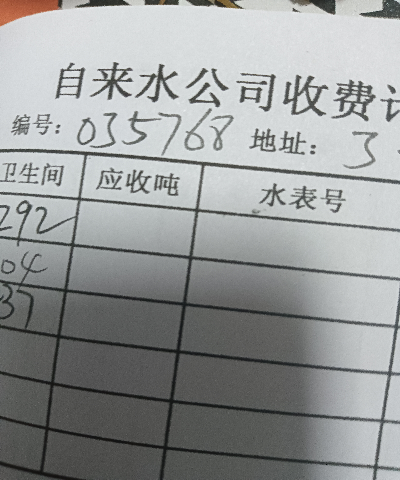 自来水公司收费
编号：035768 地址：3
卫生间 应收吨 水表号
292
04
37